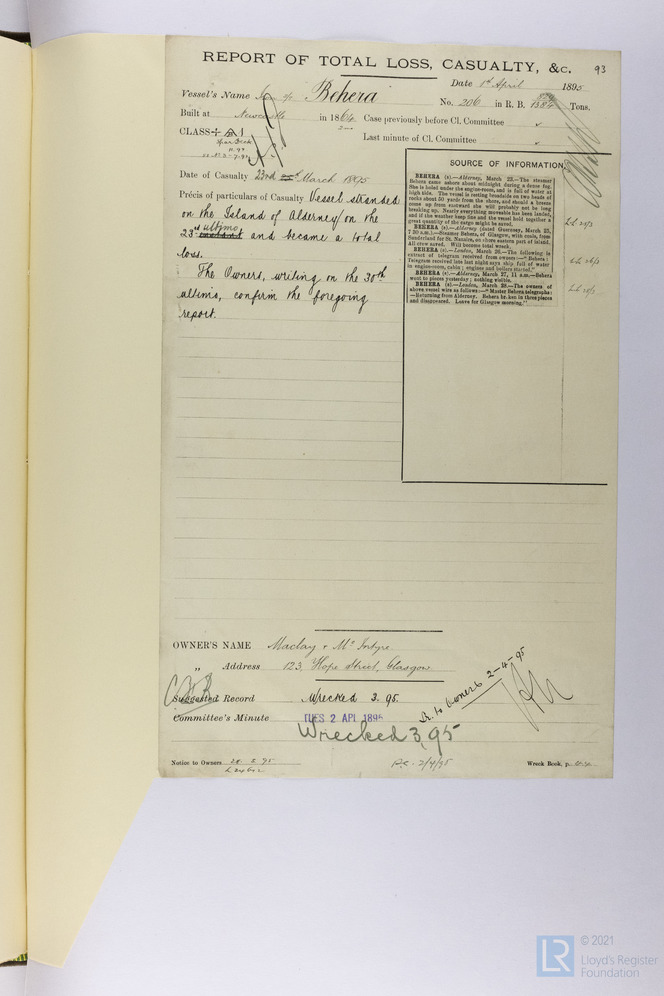 REPORT OF TOTAL LOSS, CASUALTY, &c.
93
Date 1st April 1895
Vessel's Name Behera
No. 206 in R. B. 1584 Tons.
Built at Newcastle in 1864 Case previously before Cl. Committee
CLASS + A 1
Spar Deck
Last minute of Cl. Committee
Date of Casualty 23rd March 1895
Précis of particulars of Casualty Vessel stranded
on the Island of Alderney on the
23rd ultimo and became a total
loss.
The Owners, writing on the 30th
ultimo, confirm the foregoing
report.
SOURCE OF INFORMATION
BEHERA (s).—Alderney, March 23.—The steamer
Behera came ashore about midnight during a dense fog.
She is holed under the engine-room, and is full of water at
high tide. The vessel is resting broadside on two heads of
rocks about 50 yards from the shore, and should a breeze
come up from eastward she will probably not be long
breaking up. Nearly everything moveable has been landed,
and if the weather keep fine and the vessel hold together a
great quantity of the cargo might be saved.
BEHERA (s).—Alderney (dated Guernsey, March 25,
7 20 a.m.).—Steamer Behera, of Glasgow, with coals, from
Sunderland for St. Nazaire, on shore eastern part of island.
All crew saved. Will become total wreck.
BEHERA (s).—London, March 26.—The following is
extract of telegram received from owners:—"Behera:
Telegram received late last night says ship full of water
in engine-room, cabin; engines and boilers started."
BEHERA (s).—Alderney, March 27, 11 a.m.—Behera
went to pieces yesterday; nothing visible.
BEHERA (s).—London, March 28.—The owners of
above vessel wire as follows:—"Master Behera telegraphs:
—Returning from Alderney. Behera broken in three pieces
and disappeared. Leave for Glasgow morning."
OWNER'S NAME Maclay & McIntyre
„ Address 123, Hope Street, Glasgow
Suggested Record Wrecked 3. 95.
Committee's Minute TUES 2 APL 1895
Wrecked 3.95
to Owners 2-4-95
Notice to Owners
2/4/95
Wreck Book, p.
© 2021
Lloyd's Register
Foundation